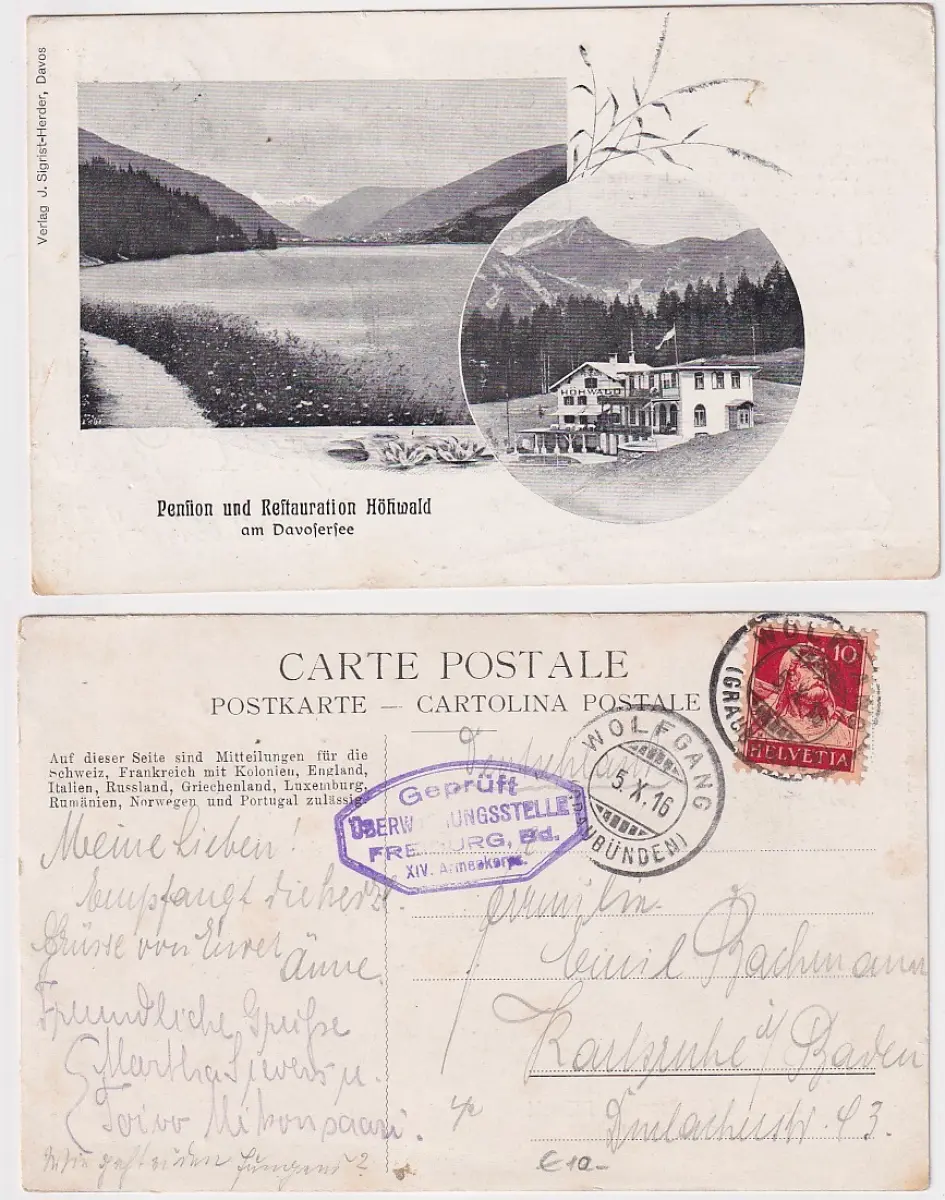 Verlag J. Sigrist-Herder, Davos
HÖHWALD
Pension und Restauration Höhwald
am Davosersee
CARTE POSTALE
POSTKARTE — CARTOLINA POSTALE
Auf dieser Seite sind Mitteilungen für die
Schweiz, Frankreich mit Kolonien, England,
Italien, Russland, Griechenland, Luxemburg,
Rumänien, Norwegen und Portugal zulässig.
WOLFGANG
10
HELVETIA
WOLFGANG
5.X.16
(GRAUBÜNDEN)
Deutschland
Geprüft
ÜBERWACHUNGSSTELLE
FREIBURG, Bd.
XIV. Armeekorps.
Meine Lieben!
Empfangt die herzl.
Grüsse von Eurer
Änne
Freundliche Grüsse
Martha Sievers u.
Toivo Mikonsaari.
Wie geht es den Jungens?
Familie
Emil Bachmann
Karlsruhe i/ Baden
Durlacherstr. 43.
€ 10-